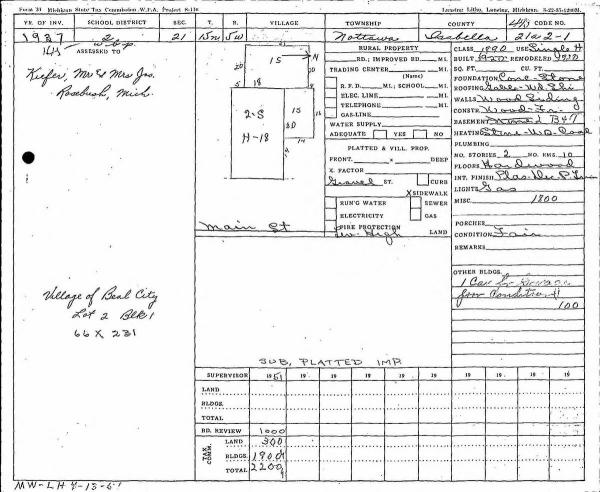 Form 31 Michigan State Tax Commission W.P.A. Project S-116 Lansing Litho, Lansing, Michigan.
YR. OF INV. SCHOOL DISTRICT SEC. T. R. VILLAGE TOWNSHIP COUNTY
1937 2 21 15N 5W Nottawa Isabella 21a2-1
ASSESSED TO
Keifer, Mr & Mrs Jos.
Rosebush, Mich
RURAL PROPERTY
RD.; IMPROVED RD. MI.
TRADING CENTER MI.
(Name)
R. F. D. MI.; SCHOOL MI.
ELEC. LINE MI.
TELEPHONE MI.
GAS-LINE MI.
WATER SUPPLY
ADEQUATE YES NO
PLATTED & VILL. PROP.
FRONT. x DEEP
X. FACTOR
Gravel ST. CURB
X SIDEWALK
RUN'G WATER SEWER
ELECTRICITY GAS
FIRE PROTECTION
Lev. High LAND
CLASS USE Single H
BUILT REMODELED
SQ. FT. CU. FT.
FOUNDATION Conc-Stone
ROOFING Gable-Wd Shi
WALLS Wood Siding
CONSTR. Wood-Fr.
BASEMENT
HEATING Stove-Wd. Coal
PLUMBING
NO. STORIES 2 NO. RMS. 10
FLOORS Hardwood
INT. FINISH
LIGHTS Gas
MISC. 1800
PORCHES
CONDITION Fair
REMARKS
OTHER BLDGS.
1 Car
poor Condition
100
N
15
20
5
18
2-S
H-18
15
20
15
14
Main St
Village of Beal City
Lot 2 Blk 1
66 X 231
SUB, PLATTED IMP
SUPERVISOR 1951 19 19 19 19 19 19 19
LAND
BLDGS.
TOTAL
BD. REVIEW 1000
TAX COMM.
LAND 300
BLDGS. 1900
TOTAL 2200
MW-LH